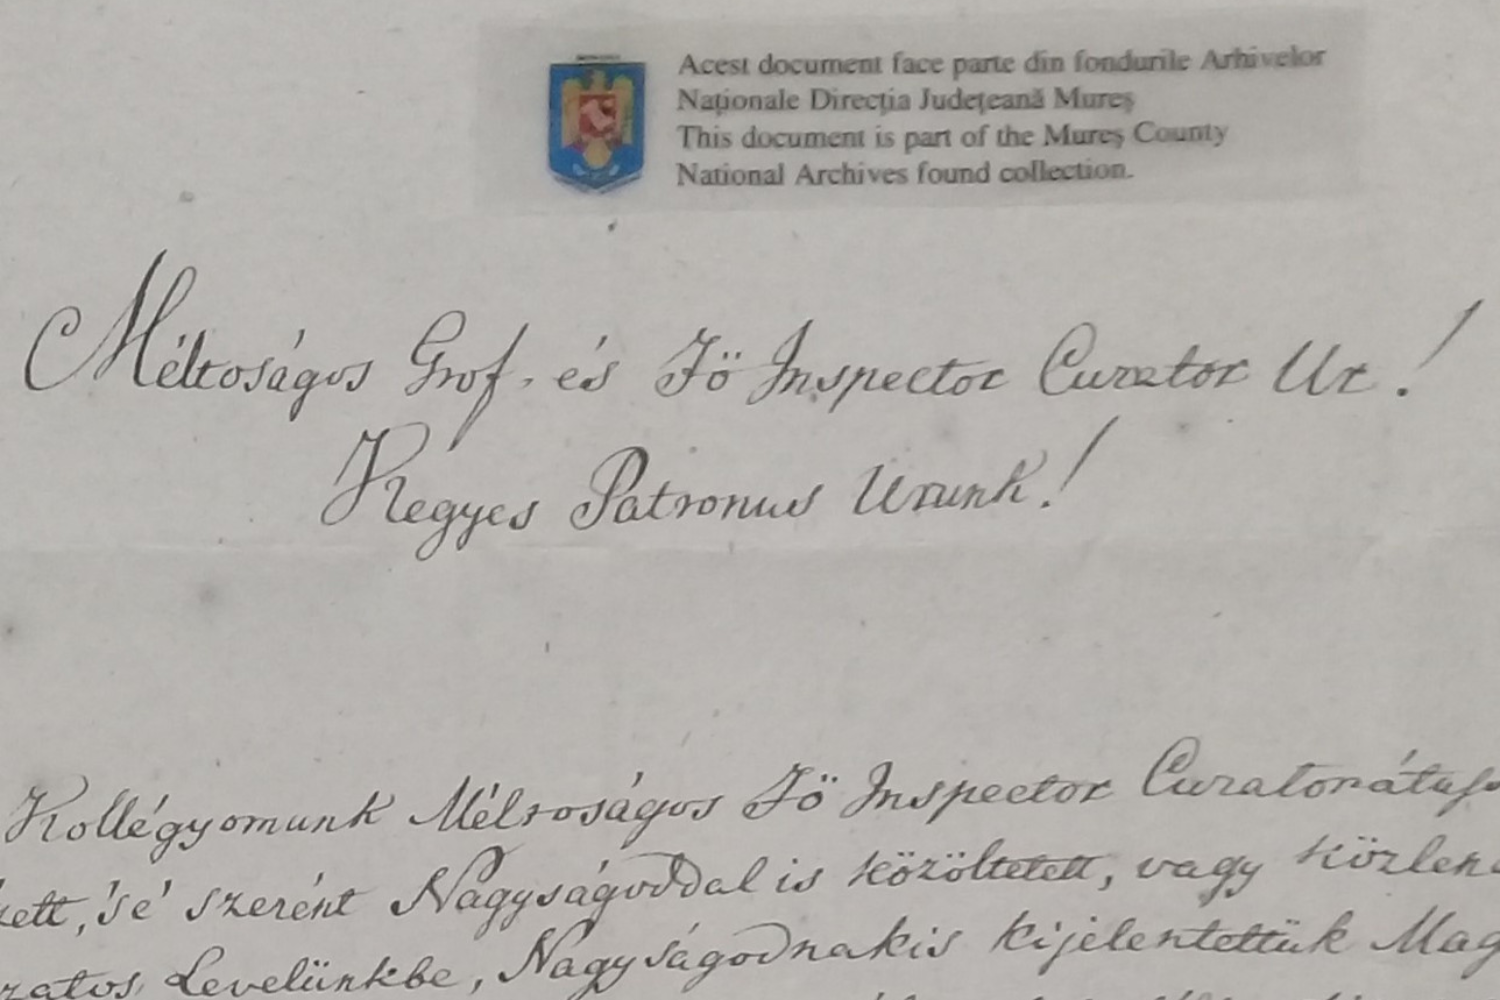 Acest document face parte din fondurile Arhivelor
Naționale Direcția Județeană Mureș
This document is part of the Mureș County
National Archives found collection.
Méltoságos Grof, és Fö Inspector Curator Ur!
Kegyes Patronus Urunk!
Kollégyomunk Méltoságos Fö Inspector
'sé szerént Nagyságoddal is közöltetett, vagy
Levelünkbe, Nagyságodnakis kijelentettük